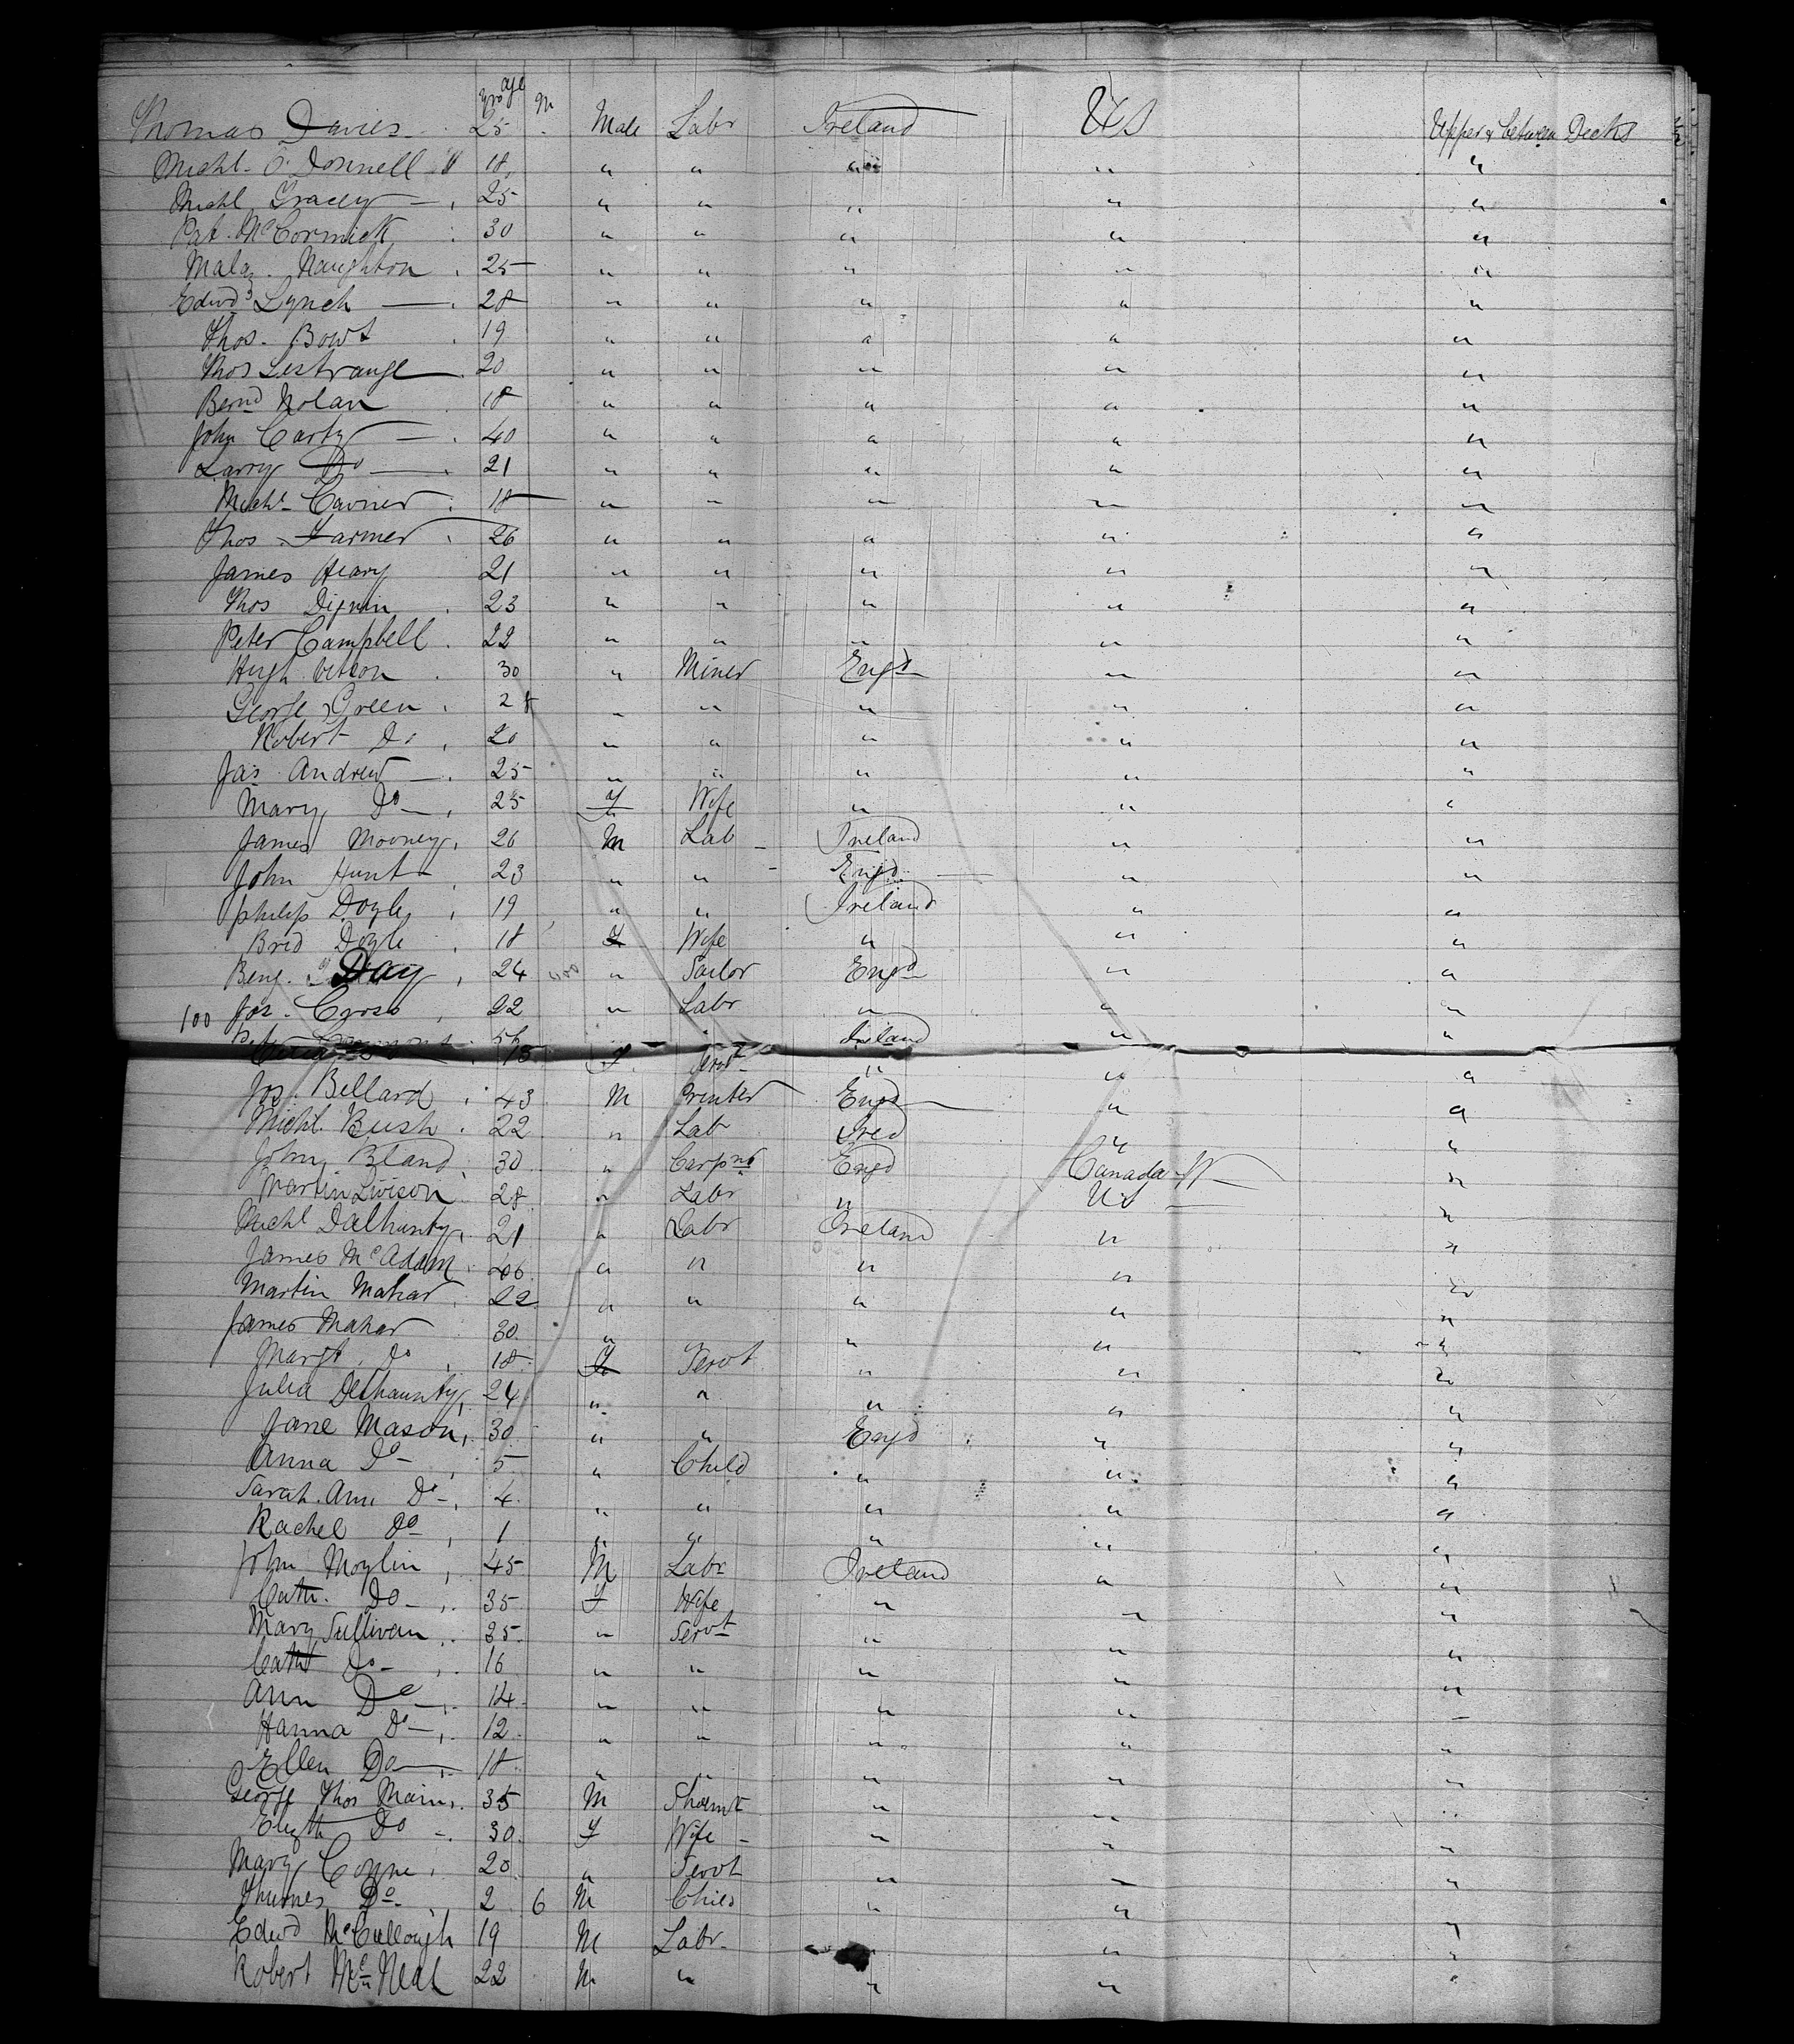 yrs age M
Thomas Davies 25 Male Labr Ireland US Upper & between Decks
Michl. O. Donnell 18 " " " " "
Michl Gracey 25 " " " " "
Pat. McCormick 30 " " " " "
Mala. Naughton 25 " " " " "
Edwd Lynch 28 " " " " "
Thos. 19 " " " " "
Thos Lestrange 20 " " " " "
Bernd Nolan 18 " " " " "
John Carty 40 " " " " "
Larry Do 21 " " " " "
Michl 18 " " " " "
Thos. Farmer 26 " " " " "
James Heary 21 " " " " "
Thos Dignin 23 " " " " "
Peter Campbell 22 " " " " "
Hugh 30 " Miner Engd " "
George Green 28 " " " " "
Robert Do 20 " " " " "
Jas Andrew 25 " " " " "
Mary Do 25 F Wife " " "
James Mooney 26 M Lab Ireland " "
John Hunt 23 " " Engd " "
Philip Doyle 19 " " Ireland " "
Brid Doyle 18 F Wife " " "
Benj. Day 24 " Engd " "
100 Jos. 22 " Labr " " "
Ireland " "
F Servt " " "
Jos. Bellard 43 M Printer Engd " "
Michl. Bush 22 " Lab Ired " "
John Bland 30 " Carpnr Engd Canada W "
Martin Livison 28 " Labr " US "
Michl Dalhunty 21 " Labr Ireland " "
James McAdam 46 " " " " "
Martin Mahar 22 " " " " "
James Mahar 30 " " " "
Margt Do 18 F Servt " " "
Julia Delhaunty 24 " " " " "
Jane Mason 30 " " Engd " "
Anna Do 5 " Child " " "
Sarah Ann Do 4 " " " " "
Rachel Do 1 " " " " "
John Moylin 45 M Labr Ireland " "
Cath. Do 35 F Wife " " "
Mary Sullivan 35 " Servt " " "
Cath Do 16 " " " " "
Ann Do 14 " " " " "
Hanna Do 12 " " " " "
Ellen Do 18 " " " " "
George Thos Main 35 M Shoemr " " "
Elizth Do 30 F Wife " " "
Mary Coyne 20 " Servt " " "
Do 2 6 M Child " " "
Edwd McCullough 19 M Labr " "
Robert McNeal 22 M " " " "